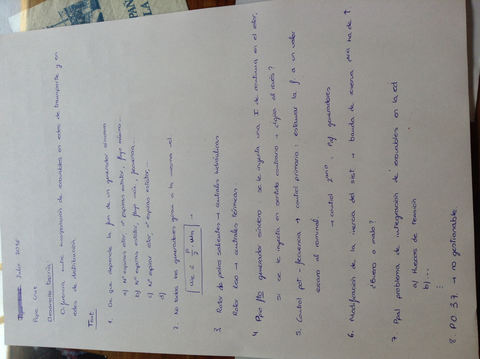 Julio 2015
Desarrollo Teórico
Diferencia entre incorporación de renovables en redes de transporte y en
redes de distribución.
Test
1. De que depende la fem de un generador síncrono
a) Nº espiras rotor, Nº espiras estator, flujo máximo...
b) Nº espiras estator, flujo máx, frecuencia...
c) Nº espiras rotor, Nº espiras estator...
d)
2. No todos los generadores giran a la misma vel.
3. Rotor de polos salientes → centrales hidráulicas
Rotor liso → centrales térmicas
4. generador síncrono: se le inyecta una I de continua en el rotor,
si se le inyecta en sentido contrario → sigue el
5. Control pot - frecuencia → control primario: estabilizar la f a un valor
cercano al nominal
→ control
6. Modificación de la inercia del sist → banda de
¿Bueno o malo?
7. Ppal problema de integración de renovables en la red
a) Huecos de tensión
b) ...
8. P.O 3.7. → no gestionable.